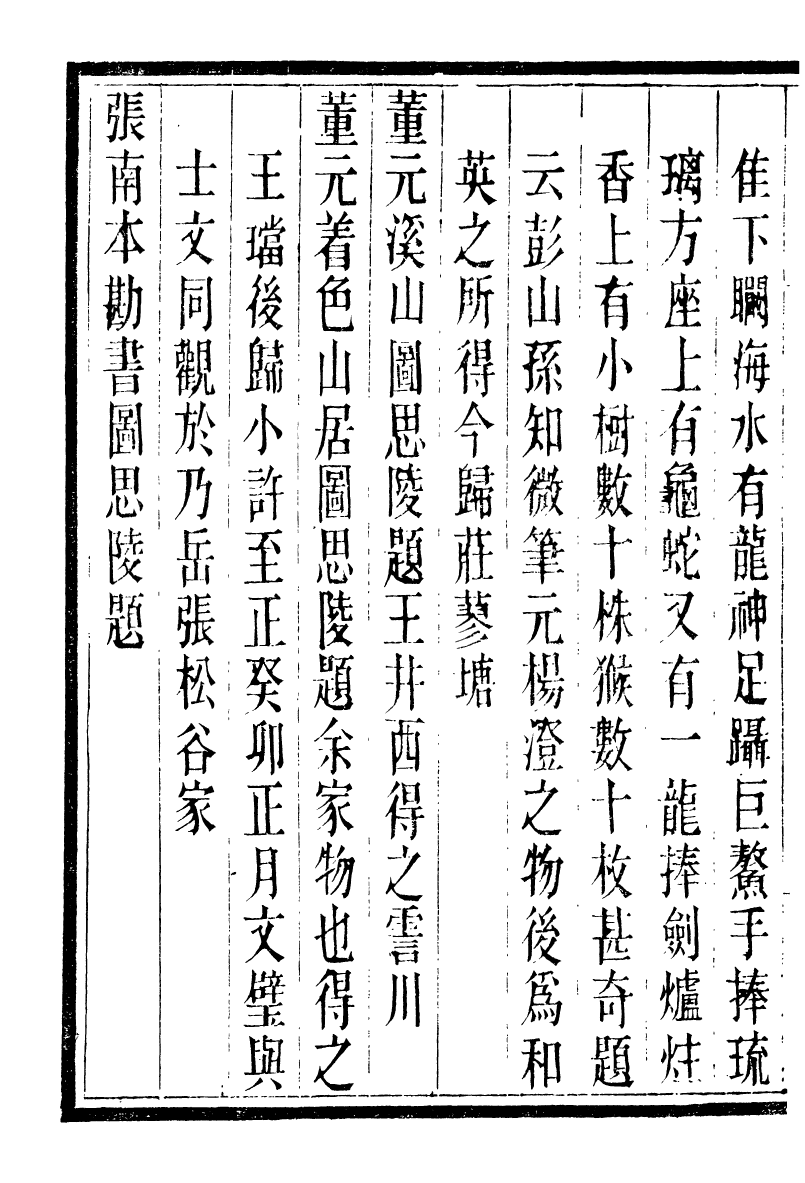 隹下瞯海水有龍神足躡巨鰲手捧琉
璃方座上有龜蛇又有一龍捧劍爐炷
香上有小樹數十株猴數十枚甚奇題
云彭山孫知微筆元楊澄之物後爲和
英之所得今歸莊蓼塘
董元溪山圖思陵題王井西得之霅川
董元着色山居圖思陵題余家物也得之
王璫後歸小許至正癸卯正月文璧與
士文同觀於乃岳張松谷家
張南本勘書圖思陵題